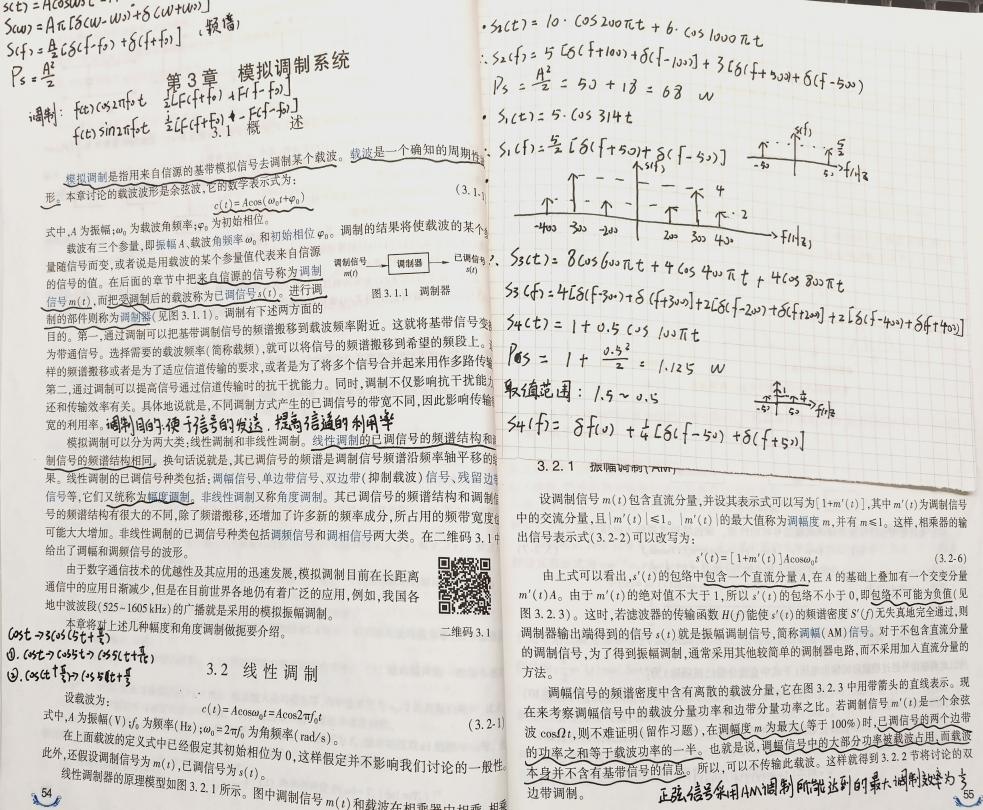 s(t)=Acosω₀t
S(ω)=Aπ[δ(ω-ω₀)+δ(ω+ω₀)]
S(f)=A/2[δ(f-f₀)+δ(f+f₀)] (频谱)
Ps=A²/2
第3章 模拟调制系统
调制: f(t)cos2πf₀t 1/2[F(f+f₀)+F(f-f₀)]
f(t)sin2πf₀t
3.1 概 述
模拟调制是指用来自信源的基带模拟信号去调制某个载波。载波是一个确知的周期性
形。本章讨论的载波波形是余弦波,它的数学表示式为:
c(t)=Acos(ω₀t+φ₀) (3.1-
式中,A为振幅;ω₀为载波角频率;φ₀为初始相位。
载波有三个参量,即振幅A、载波角频率ω₀和初始相位φ₀。调制的结果将使载波的某个
量随信号而变,或者说是用载波的某个参量值代表来自信源
的信号的值。在后面的章节中把来自信源的信号称为调制
信号m(t),而把受调制后的载波称为已调信号s(t)。进行调
制的部件则称为调制器(见图3.1.1)。调制有下述两方面的
调制信号 m(t) 调制器 已调信号 s(t)
图3.1.1 调制器
目的。第一,通过调制可以把基带调制信号的频谱搬移到载波频率附近。这就将基带信号变
为带通信号。选择需要的载波频率(简称载频),就可以将信号的频谱搬移到希望的频段上。
样的频谱搬移或者是为了适应信道传输的要求,或者是为了将多个信号合并起来用作多路传
第二,通过调制可以提高信号通过信道传输时的抗干扰能力。同时,调制不仅影响抗干扰能
还和传输效率有关。具体地说就是,不同调制方式产生的已调信号的带宽不同,因此影响传输
宽的利用率。调制目的:便于信号的发送,提高信道的利用率
模拟调制可以分为两大类:线性调制和非线性调制。线性调制的已调信号的频谱结构和
制信号的频谱结构相同。换句话说就是,其已调信号的频谱是调制信号频谱沿频率轴平移的
果。线性调制的已调信号种类包括:调幅信号、单边带信号、双边带(抑制载波)信号、残留边
信号等,它们又统称为幅度调制。非线性调制又称角度调制。其已调信号的频谱结构和调制
号的频谱结构有很大的不同,除了频谱搬移,还增加了许多新的频率成分,所占用的频带宽度
可能大大增加。非线性调制的已调信号种类包括调频信号和调相信号两大类。在二维码3.1
给出了调幅和调频信号的波形。
由于数字通信技术的优越性及其应用的迅速发展,模拟调制目前在长距离
通信中的应用日渐减少,但是在目前世界各地仍有着广泛的应用,例如,我国各
地中波波段(525~1605 kHz)的广播就是采用的模拟振幅调制。
本章将对上述几种幅度和角度调制做扼要介绍。
二维码3.1
cost→3cos(5t+π/3)
①.cost→cos5t→cos5(t+π/15)
②.cos(t+π/3)→cos5t+π/3
3.2 线性调制
设载波为:
c(t)=Acosω₀t=Acos2πf₀t (3.2-1)
式中,A为振幅(V);f₀为频率(Hz);ω₀=2πf₀为角频率(rad/s)。
在上面载波的定义式中已经假定其初始相位为0,这样假定并不影响我们讨论的一般性
此外,还假设调制信号为m(t),已调信号为s(t)。
线性调制器的原理模型如图3.2.1所示。图中调制信号m(t)和载波在相乘器中相乘,相
54
·S₂(t)=10·cos200πt+6·cos1000πt
∴S₂(f)=5[δ(f+100)+δ(f-100)]+3[δ(f+500)+δ(f-500)
Ps=A²/2=50+18=68 W
·S₁(t)=5·cos314t
∴S₁(f)=5/2[δ(f+50)+δ(f-50)]
s(f) 5/2 -50 50 f/Hz
s(f) 4 2
-400 300 -200 200 300 400 f(Hz)
S₃(t)=8cos600πt+4cos400πt+4cos800πt
S₃(f)=4[δ(f-300)+δ(f+300)]+2[δ(f-200)+δ(f+200)]+2[δ(f-400)+δ(f+400)]
S₄(t)=1+0.5cos100πt
Ps=1+0.5²/2=1.125 W
取值范围: 1.5~0.5
1 1/4 -50 50 f/Hz
S₄(f)=δf(0)+1/4[δ(f-50)+δ(f+50)]
3.2.1 振幅调制(AM)
设调制信号m(t)包含直流分量,并设其表示式可以写为[1+m′(t)],其中m′(t)为调制信号
中的交流分量,且|m′(t)|≤1。|m′(t)|的最大值称为调幅度m,并有m≤1。这样,相乘器的输
出信号表示式(3.2-2)可以改写为:
s′(t)=[1+m′(t)]Acosω₀t (3.2-6)
由上式可以看出,s′(t)的包络中包含一个直流分量A,在A的基础上叠加有一个交变分量
m′(t)A。由于m′(t)的绝对值不大于1,所以s′(t)的包络不小于0,即包络不可能为负值(见
图3.2.3)。这时,若滤波器的传输函数H(f)能使s′(t)的频谱密度S′(f)无失真地完全通过,则
调制器输出端得到的信号s(t)就是振幅调制信号,简称调幅(AM)信号。对于不包含直流分量
的调制信号,为了得到振幅调制,通常采用其他较简单的调制器电路,而不采用加入直流分量的
方法。
调幅信号的频谱密度中含有离散的载波分量,它在图3.2.3中用带箭头的直线表示。现
在来考察调幅信号中的载波分量功率和边带分量功率之比。若调制信号m′(t)是一个余弦
波cosΩt,则不难证明(留作习题),在调幅度m为最大(等于100%)时,已调信号的两个边带
的功率之和等于载波功率的一半。也就是说,调幅信号中的大部分功率被载波占用,而载波
本身并不含有基带信号的信息。所以,可以不传输此载波。这样就得到3.2.2节将讨论的双
边带调制。
正弦信号采用AM调制所能达到的最大调制效率为1/3
55